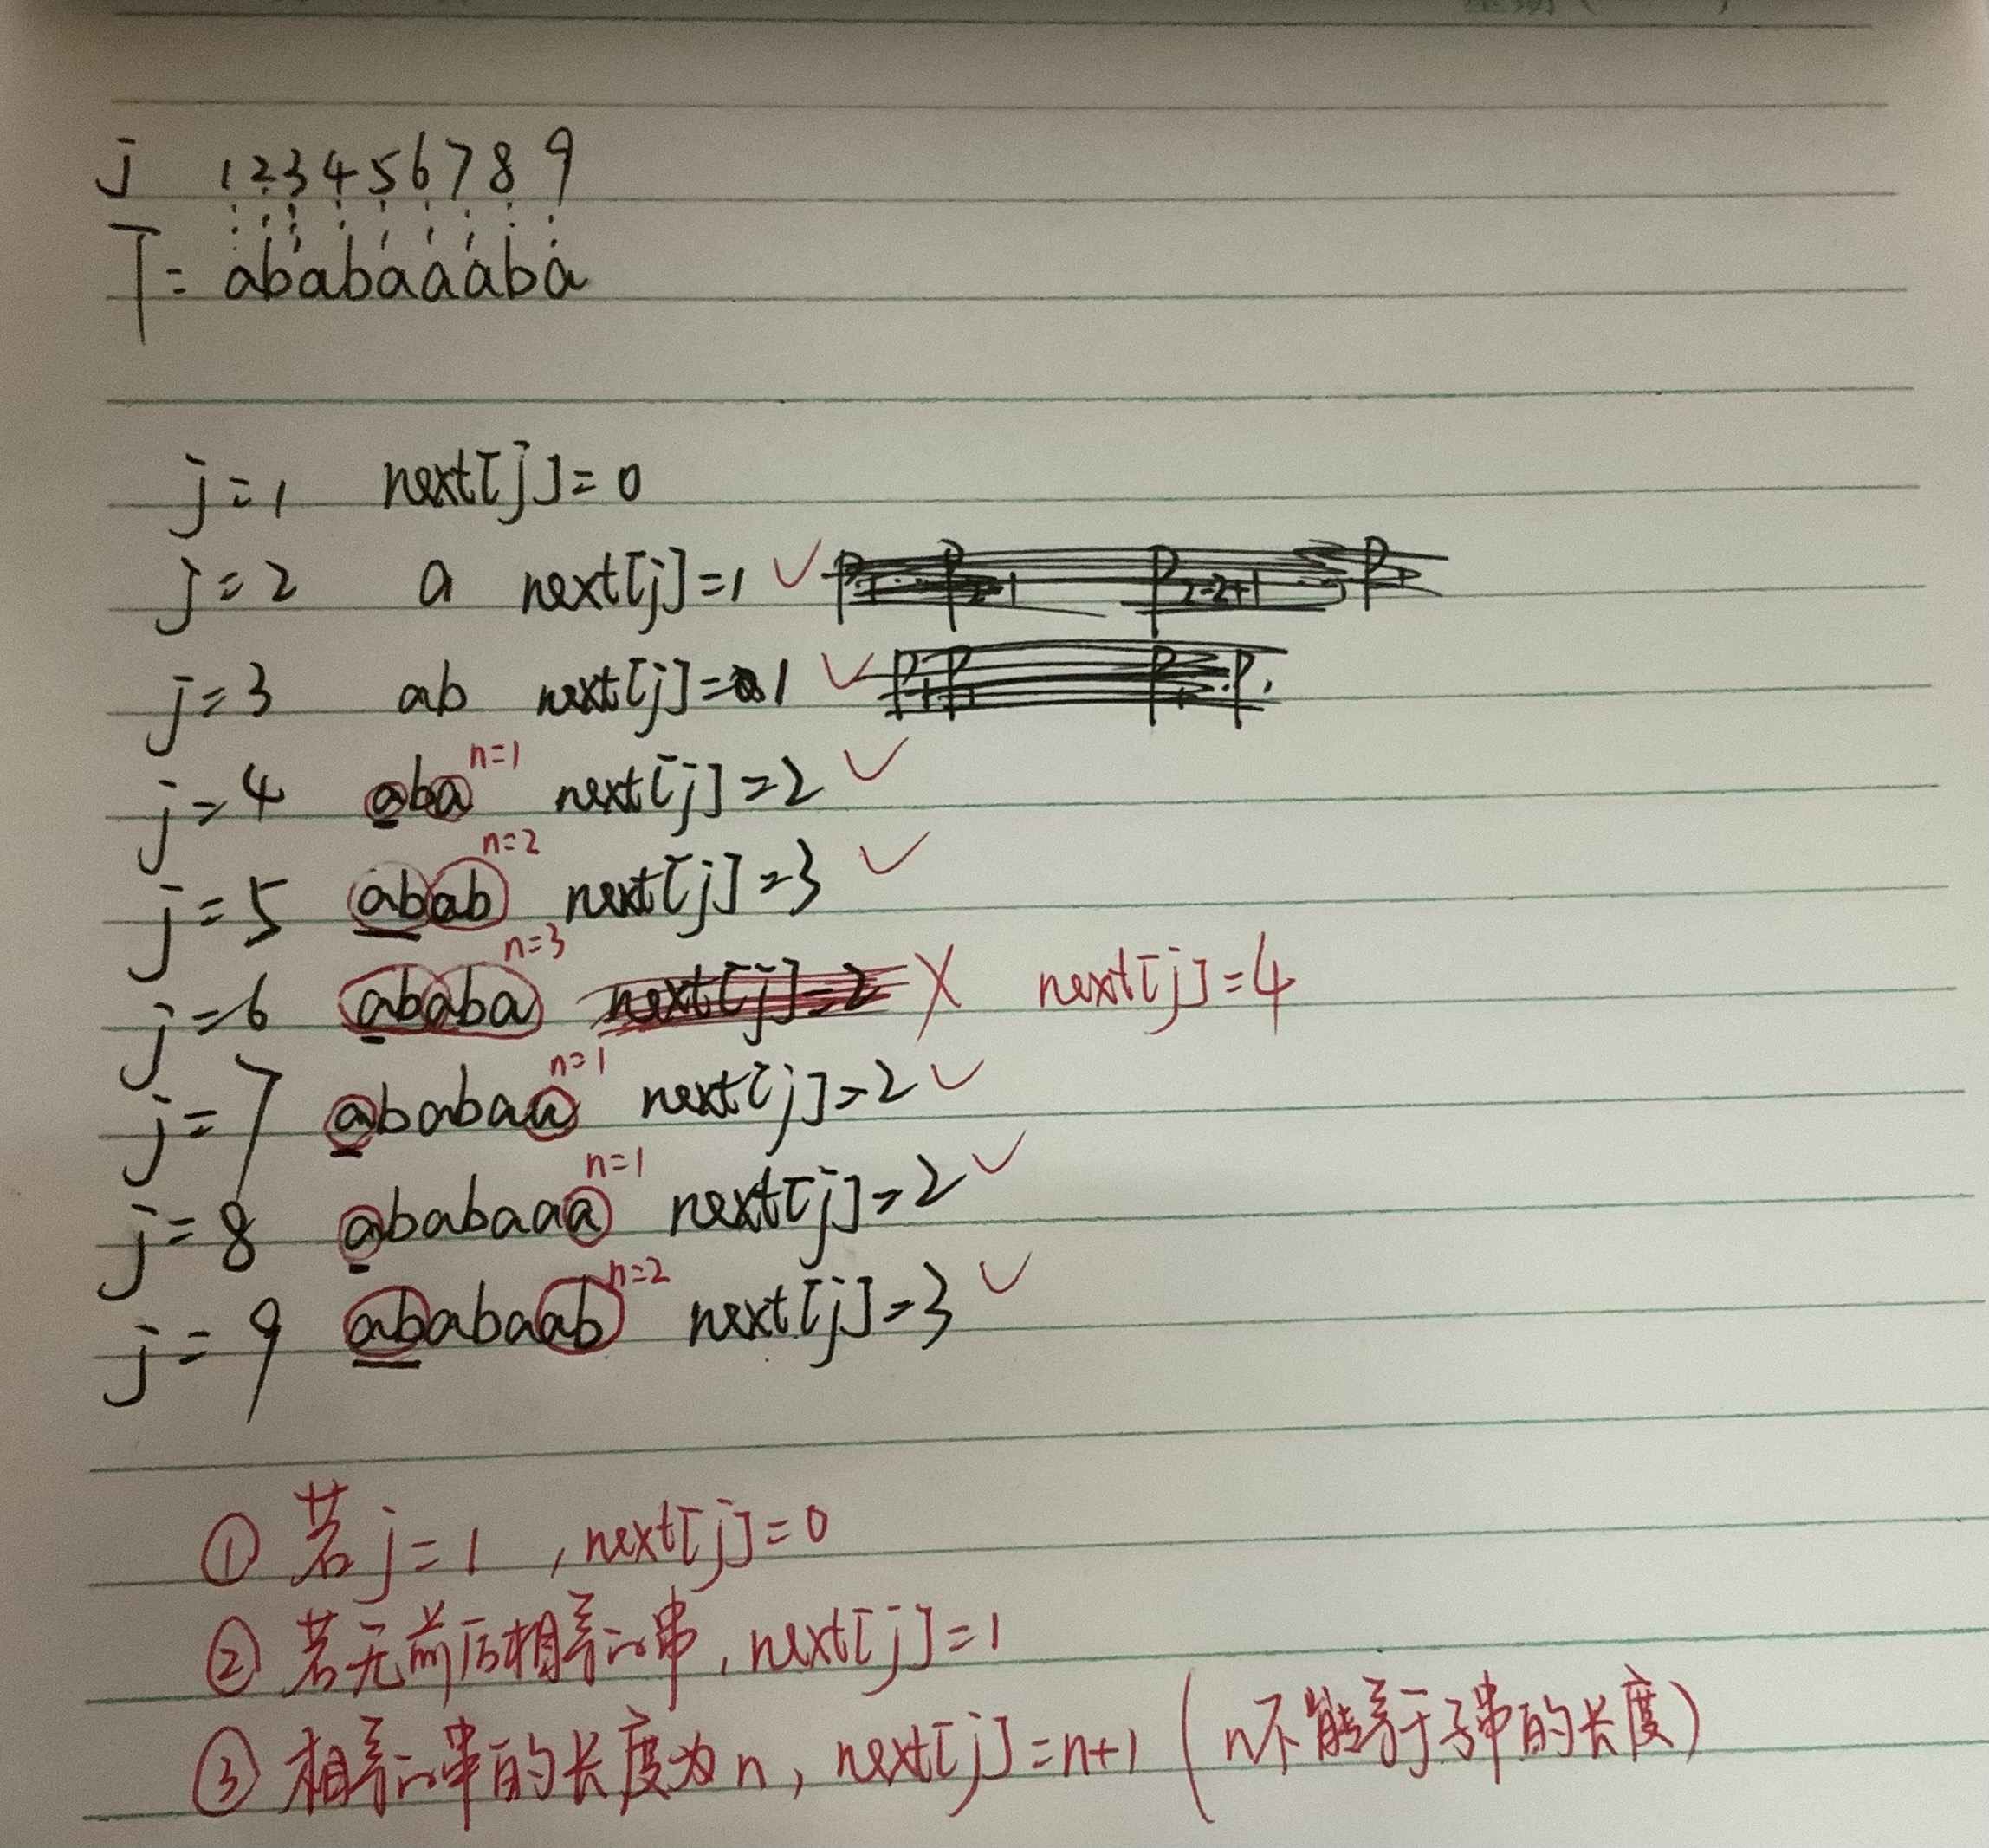 j 1 2 3 4 5 6 7 8 9
T= ababaaaba
j=1 next[j]=0
j=2 a next[j]=1 ✓
j=3 ab next[j]=1 ✓
j=4 aba n=1 next[j]=2 ✓
j=5 abab n=2 next[j]=3 ✓
j=6 ababa n=3 next[j]=2 X next[j]=4
j=7 ababaa n=1 next[j]=2 ✓
j=8 ababaaa n=1 next[j]=2 ✓
j=9 ababaaab n=2 next[j]=3 ✓
① 若j=1,next[j]=0
② 若无前后相等的串,next[j]=1
③ 相等的串的长度为n,next[j]=n+1(n不能等于子串的长度)